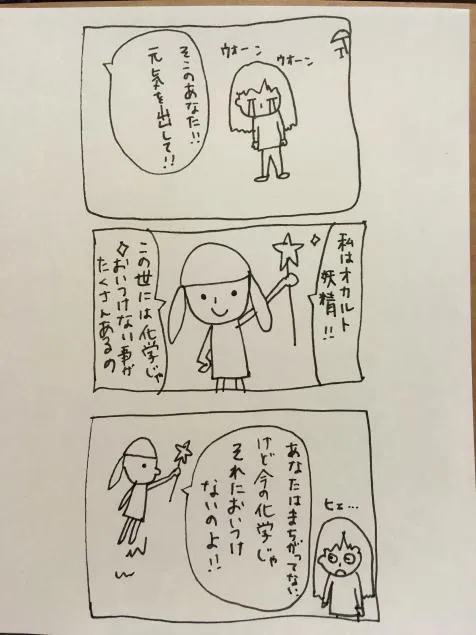 そこのあなた!!
元気を出して!!
ウオーン
ウオーン
私はオカルト
妖精!!
この世には化学じゃ
おいつけない事が
たくさんあるの
あなたはまちがってない
けど今の化学じゃ
それにおいつけ
ないのよ!!
ヒェ…